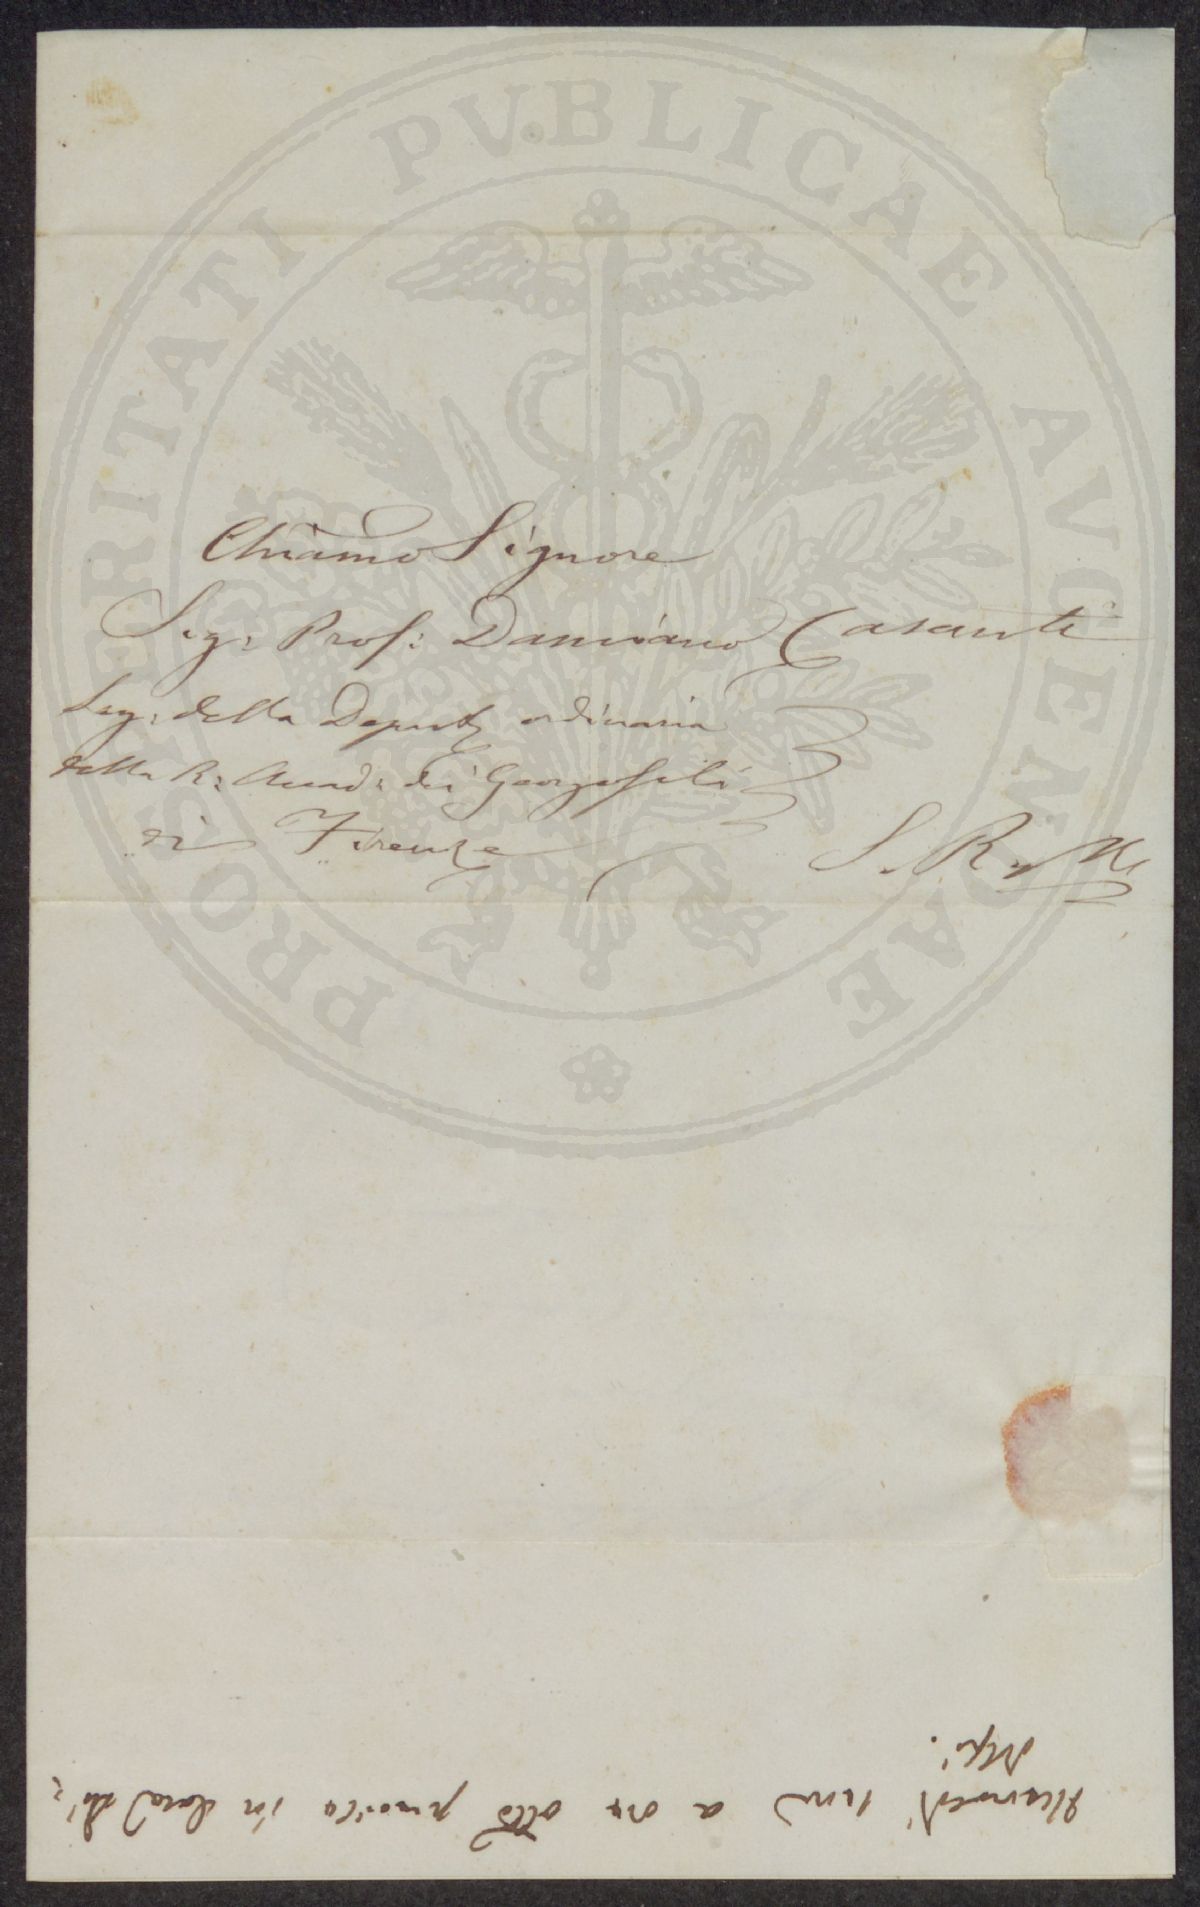 PROSPERITATI PVBLICAE AVGENDAE
Chiãmo Signore
Sig: Prof: Damiano Casanti
Seg: della Deputz ordinaria
della R: Accad: dei Georgofili
di Firenze
S. R. M.
a ore otto in